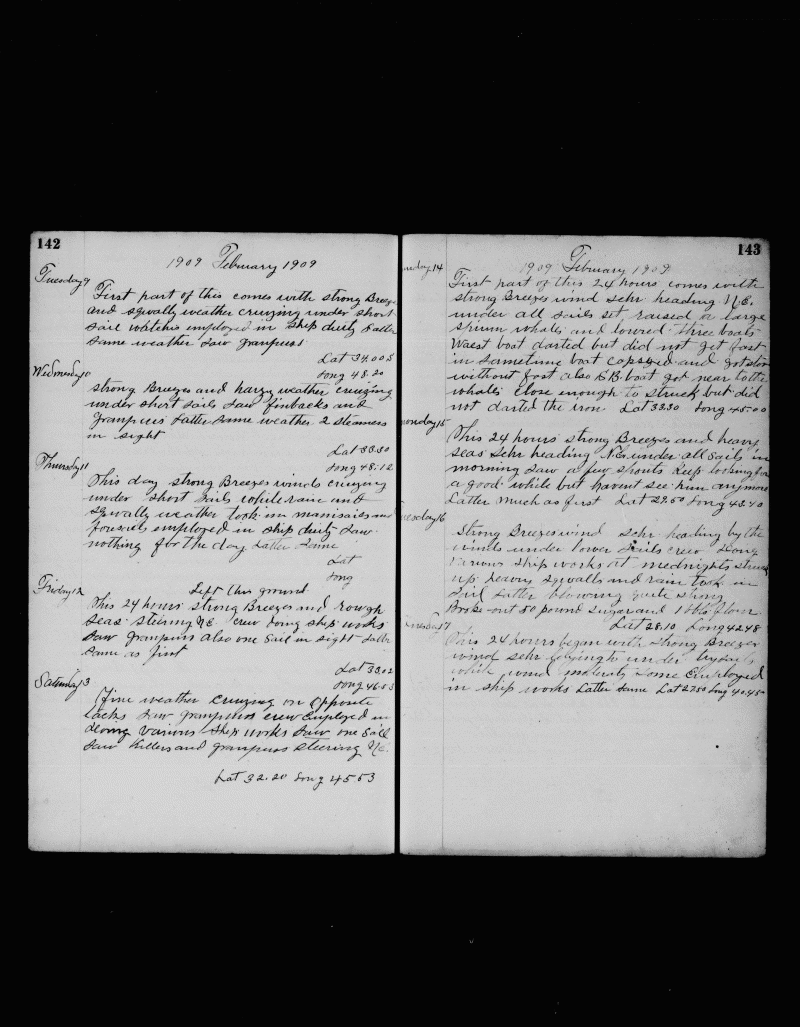 142
1909 February 1909
Tuesday 9
First part of this comes with strong Breeze
and sqwally weather cruizing under short
sail watches employed in ship duty Latter
same weather Saw granpuss
Lat 34.00 S
Long 48.20
Wednesday 10
strong Breezes and hazy weather cruizing
under short sails Saw finbacks and
Granpuss Latter same weather 2 steamers
in sight
Lat 33.30
Long 48.12
Thursday 11
This day strong Breezes winds cruizing
under short sails while rain and
sqwally weather took in mainsails and
employed in ship duty Saw
nothing for the day Latter Same
Lat
Long
Left this ground
Friday 12
This 24 hours strong Breezes and rough
seas stering NE. crew doing ship works
Saw granpuss also one Sail in sight Latter
same as first
Lat 33.02
Long 46.53
Saturday 13
fine weather cruizing on opposite
tacks Saw granpuss crew Employed in
doing various ship works Saw one Sail
Saw Killers and granpuss steering NE.
Lat 32.20 Long 45 53
143
1909 February 1909
nday 14
First part of this 24 hours comes with
strong Breezes wind schr heading N.E.
under all sails set raised a large
sperm whales and lowered three boats
Waest boat darted but did not get fast
in sometime boat capsized and got
without fast also boat got near to the
whales close enough to struck but did
not darted the iron Lat 33.30 Long 45.00
onday 15
This 24 hours strong Breezes and heavy
seas schr heading N.E. under all Sails in
morning Saw a few spouts Keep looking for
a good while but havent see him anymore
Latter much as first Lat 29.50 Long 43.40
uesday 16
Strong Breezes wind schr heading by the
winds under lower Sails crew doing
various ship works at mednights struck
up heavy sqwalls and rain took in
Sail Latter blowing quite strong
Broke out 50 pound sugar and 1 bbls flour
Lat 28.10 Long 42.48
17
This 24 hours began with strong Breezes
wind schr under
while wind moderate some Employed
in ship works Latter Same Lat 27.50 Long 40.45